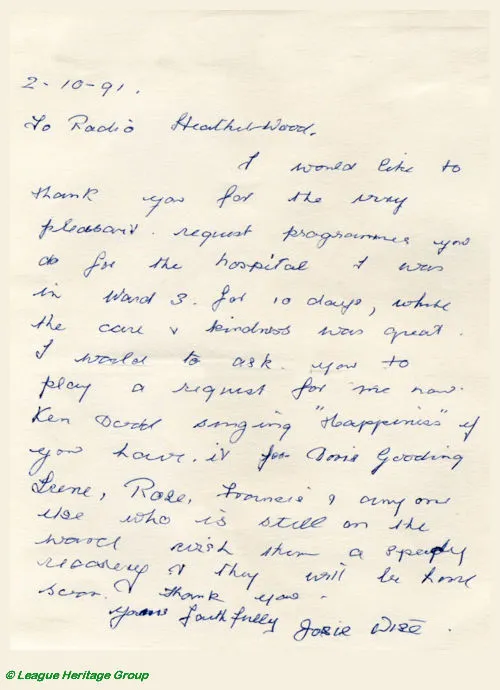 2-10-91.
To Radio Heatherwood.
I would like to
thank you for the very
pleasant. request programmes you
do for the hospital I was
in Ward 3. for 10 days, where
the care & kindness was great.
I would to ask. you to
play a request for me now.
Ken Dodd singing "Happiness" if
you have. it for Doris Gooding
Irene, Rose, Francis & any one
else who is still on the
ward wish them a speedy
recovery & they will be home
soon. & thank you.
Yours faithfully Josie Wise.
© League Heritage Group